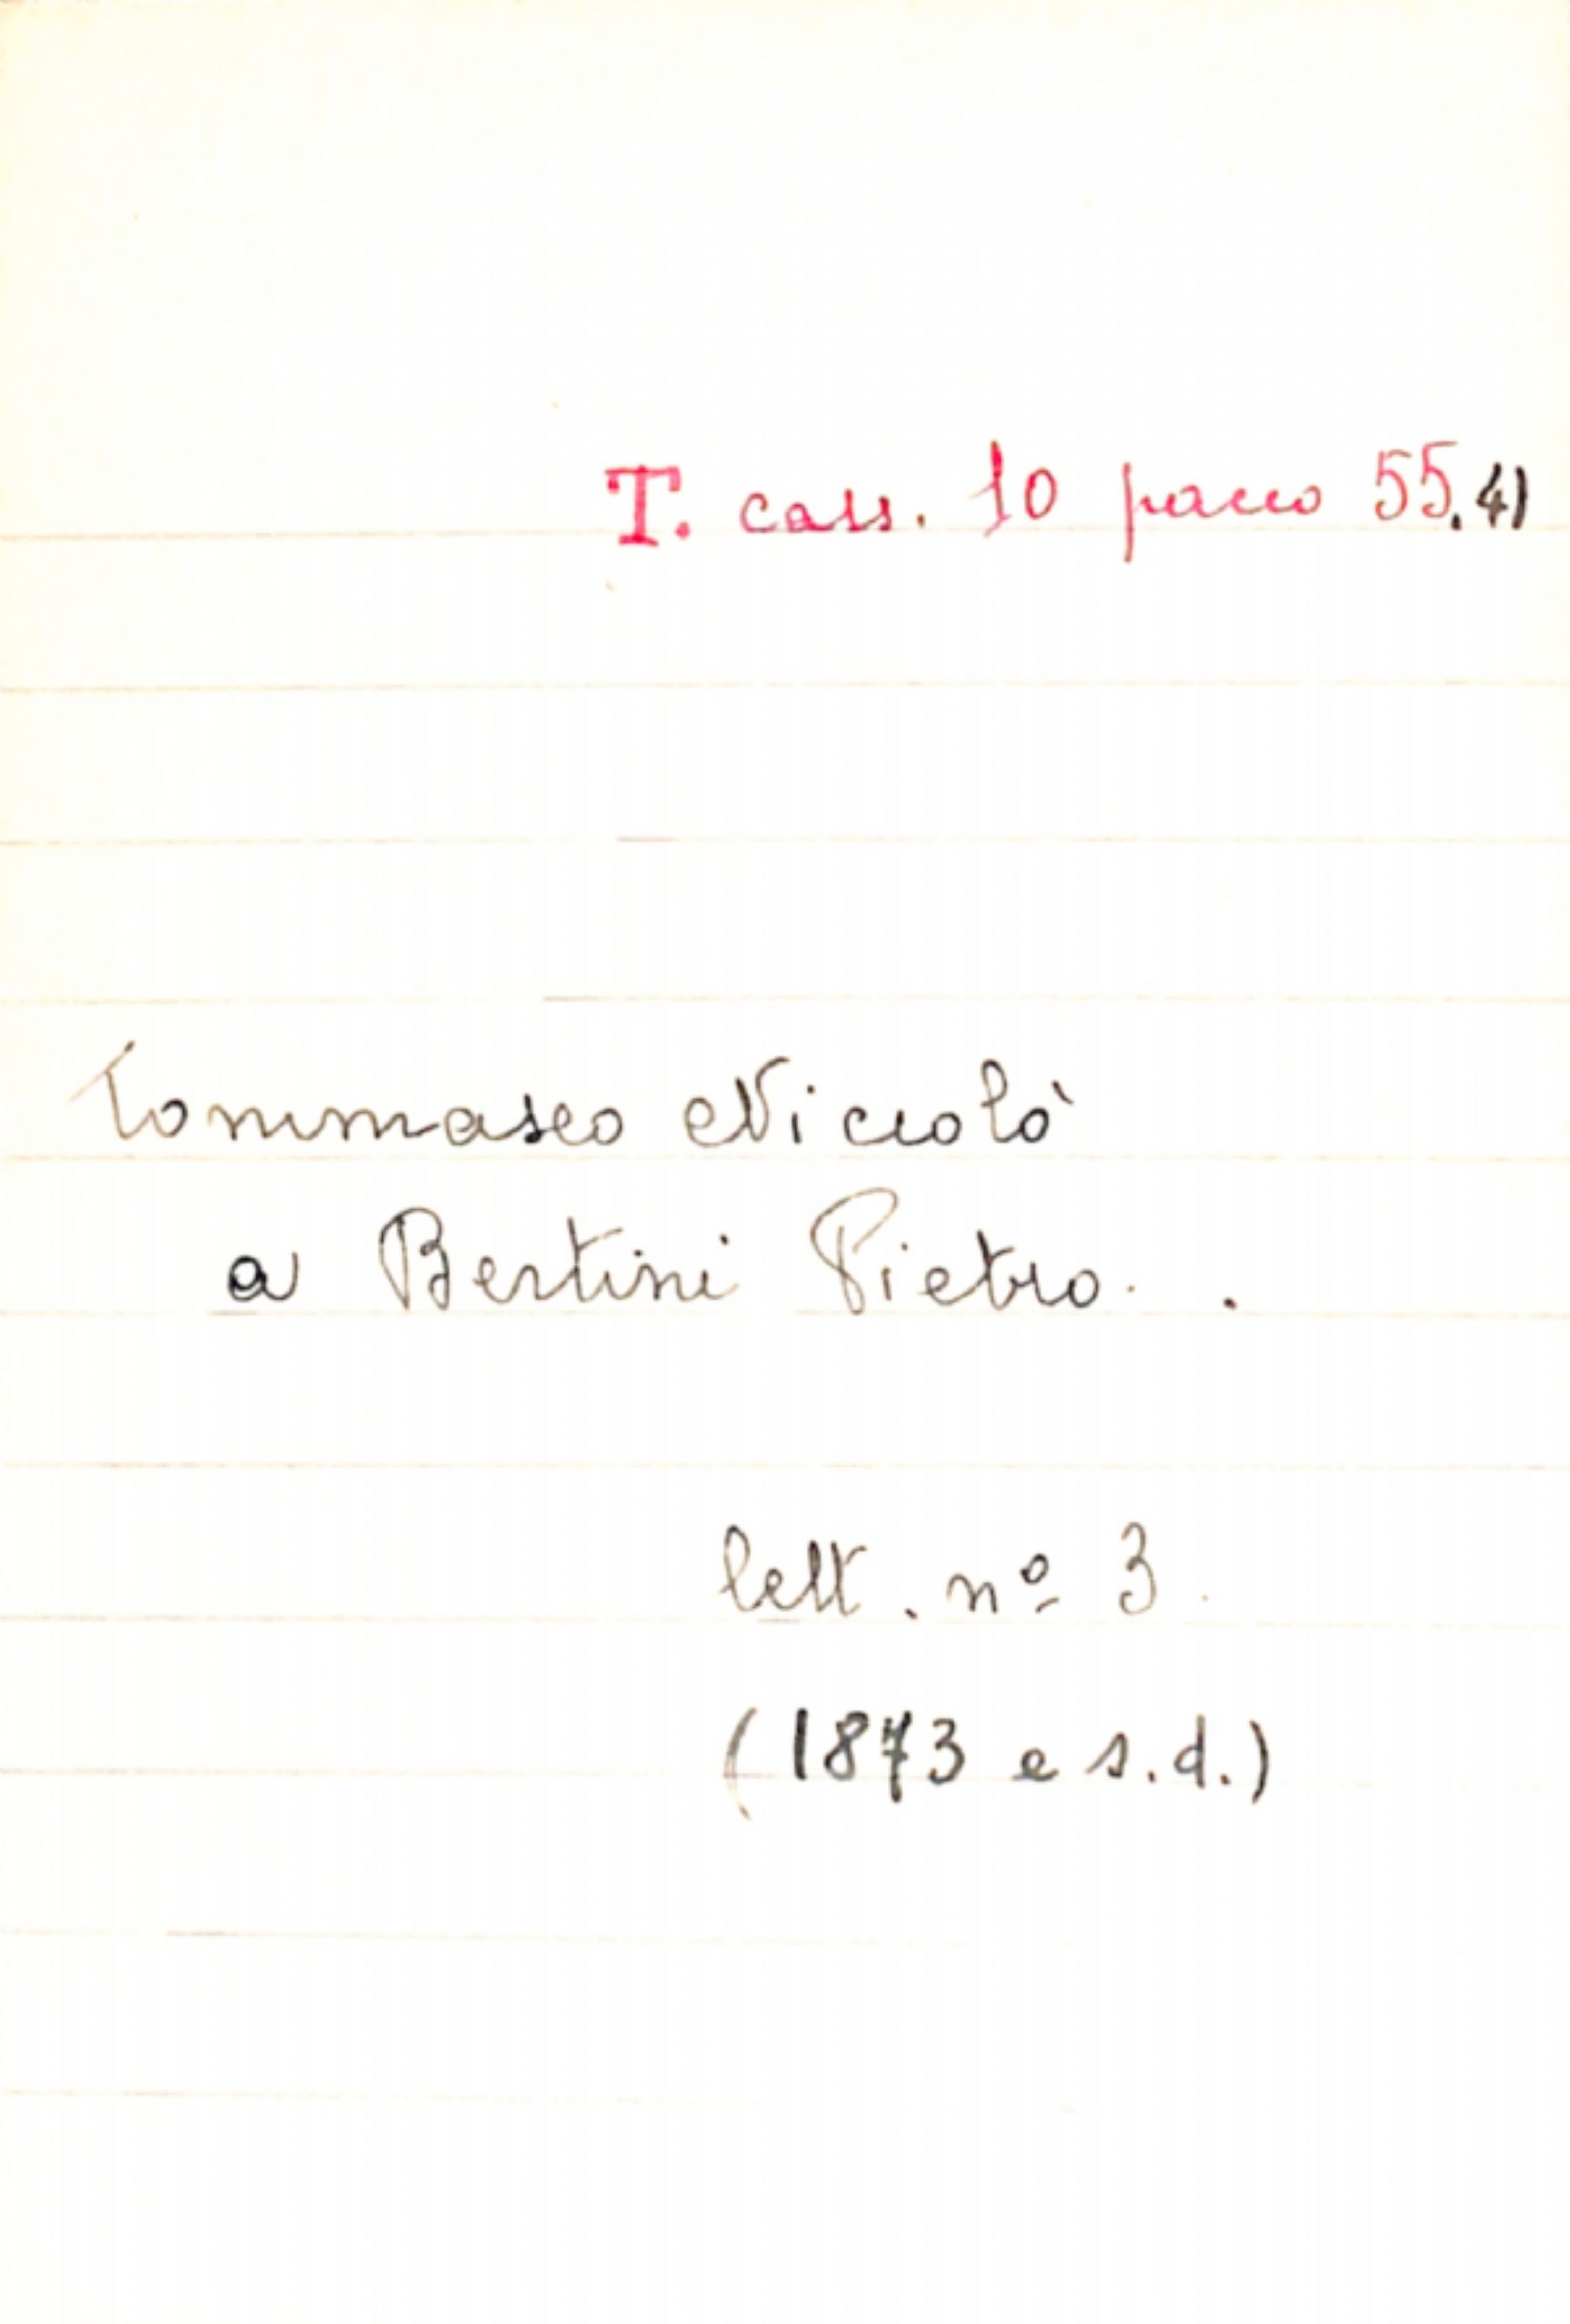 T. cass. 10 pacco 55.41
Tommaseo Niccolò
a Bertini Pietro.
lett. nº 3.
(1873 e s.d.)